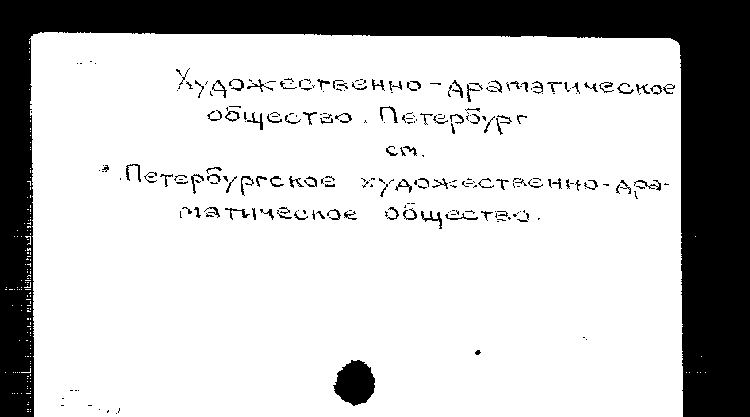 Художественно-драматическое
общество. Петербург
см.
Петербургское художественно-дра-
матическое общество.